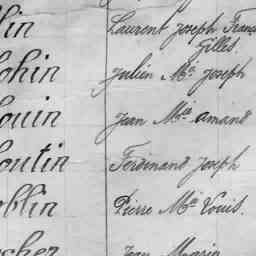 lin Laurent Joseph Franc
Gilles.
ohin Julien Mie Joseph
ouin Jean Mie Amand
outin Ferdinand Joseph
blin Pierre Mie Louis.
cher Jean Marin